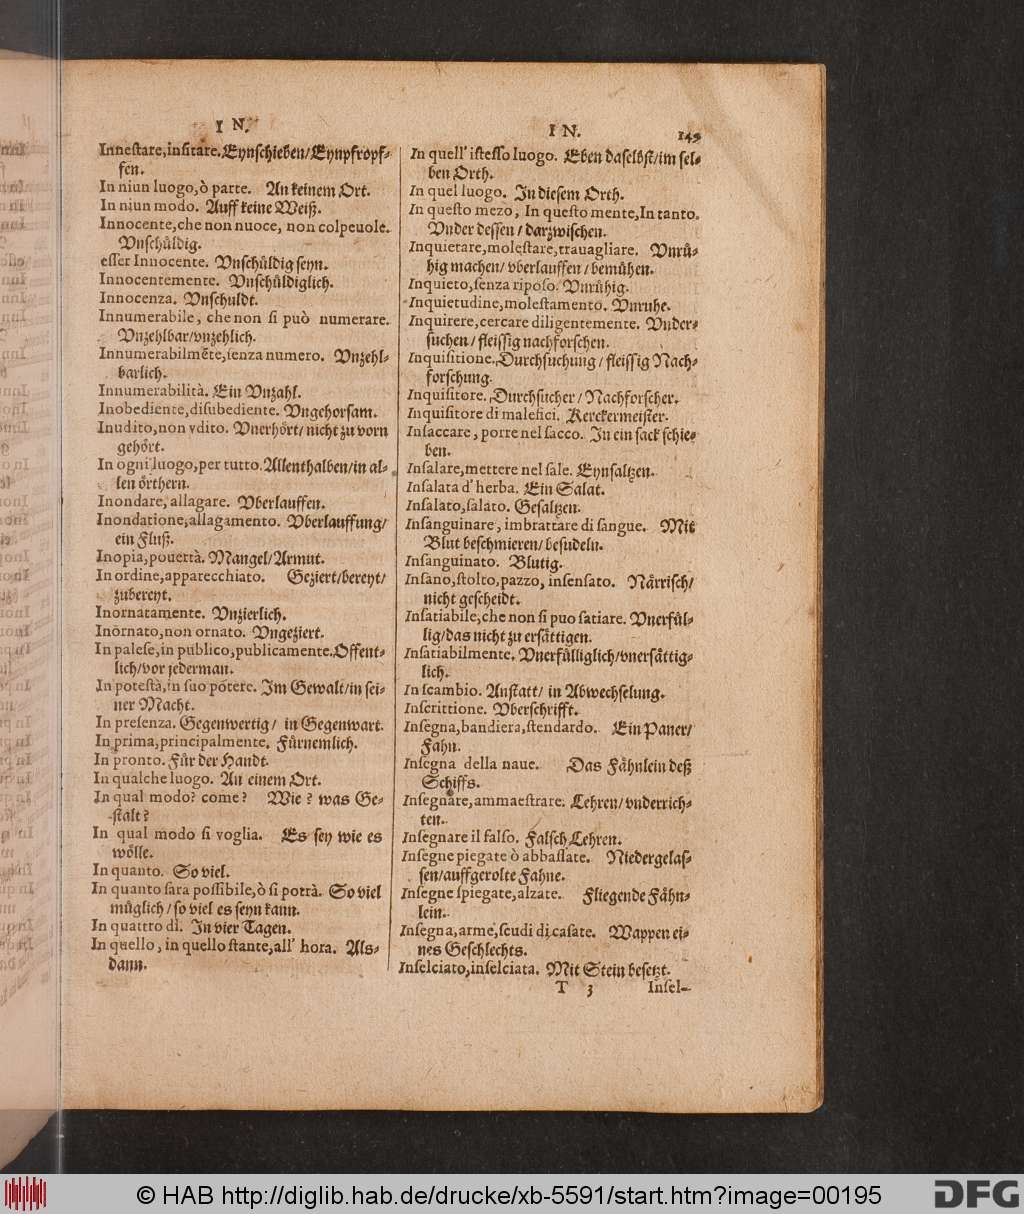 I N.
Inneſtare,inſitare. Eynſchieben/Eynpfropf⸗
fen.
In niun luogo,ò parte. An keinem Ort.
In niun modo. Auff keine Weiß.
Innocente,che non nuoce, non colpeuole.
Vnſchuͤldig.
eſſer Innocente. Vnſchuͤldig ſeyn.
Innocentemente. Vnſchuͤldiglich.
Innocenza. Vnſchuldt.
Innumerabile, che non ſi può numerare.
Vnzehlbar/vnzehlich.
Innumerabilmẽte,ſenza numero. Vnzehl⸗
barlich.
Innumerabilità. Ein Vnzahl.
Inobediente,diſubediente. Vngehorſam.
Inudito,non vdito. Vnerhoͤrt/ nicht zu vorn
gehoͤrt.
In ogni luogo,per tutto. Allenthalben/in al⸗
len oͤrthern.
Inondare, allagare. Vberlauffen.
Inondatione,allagamento. Vberlauffung/
ein Fluß.
Inopia,pouertà. Mangel/Armut.
In ordine,apparecchiato. Geziert/bereyt/
zubereyt.
Inornatamente. Vnzierlich.
Inornato,non ornato. Vngeziert.
In paleſe,in publico,publicamente. Offent⸗
lich/vor jederman.
In poteſtà,in ſuo potere. Im Gewalt/in ſei⸗
ner Macht.
In preſenza. Gegenwertig/ in Gegenwart.
In prima,principalmente. Fuͤrnemlich.
In pronto. Fuͤr der Handt.
In qualche luogo. An einem Ort.
In qual modo? come? Wie? was Ge⸗
ſtalt?
In qual modo ſi voglia. Es ſey wie es
woͤlle.
In quanto. So viel.
In quanto ſara poſſibile,ò ſi potrà. So viel
muͤglich/ ſo viel es ſeyn kann.
In quattro dì. In vier Tagen.
In quello, in quello ſtante,all' hora. Als⸗
dann.
I N. 149
In quell' iſteſſo luogo. Eben daſelbſt/im ſel⸗
ben Orth.
In quel luogo. In dieſem Orth.
In queſto mezo, In queſto mente,In tanto.
Vnder deſſen/ darzwiſchen.
Inquietare,moleſtare,trauagliare. Vnruͤ⸗
hig machen/ vberlauffen/ bemuͤhen.
Inquieto,ſenza ripoſo. Vnruͤhig.
Inquietudine,moleſtamento. Vnruhe.
Inquirere,cercare diligentemente. Vnder⸗
ſuchen/ fleiſſig nachforſchen.
Inquiſitione. Durchſuchung/ fleiſſig Nach⸗
forſchung.
Inquiſitore. Durchſucher/ Nachforſcher.
Inquiſitore di malefici. Kerckermeiſter.
Inſaccare, porre nel ſacco. In ein ſack ſchie⸗
ben.
Inſalare,mettere nel ſale. Eynſaltzen.
Inſalata d' herba. Ein Salat.
Inſalato,ſalato. Geſaltzen.
Inſanguinare, imbrattare di ſangue. Mit
Blut beſchmieren/ beſudeln.
Inſanguinato. Blutig.
Inſano,ſtolto,pazzo, inſenſato. Naͤrriſch/
nicht geſcheidt.
Inſatiabile,che non ſi puo ſatiare. Vnerfuͤl⸗
lig/das nicht zu erſaͤttigen.
Inſatiabilmente. Vnerfuͤlliglich/vnerſaͤttig⸗
lich.
In ſcambio. Anſtatt/ in Abwechſelung.
Inſcrittione. Vberſchrifft.
Inſegna,bandiera,ſtendardo. Ein Paner/
Fahn.
Inſegna della naue. Das Faͤhnlein deß
Schiffs.
Inſegnare,ammaeſtrare. Lehren/ vnderrich⸗
ten.
Inſegnare il falſo. Falſch Lehren.
Inſegne piegate ò abbaſſate. Niedergelaſ⸗
ſen/auffgerolte Fahne.
Inſegne ſpiegate,alzate. Fliegende Faͤhn⸗
lein.
Inſegna,arme,ſcudi di caſate. Wappen ei⸗
nes Geſchlechts.
Inſelciato,inſelciata. Mit Stein beſetzt.
T 3 Inſel-
© HAB http://diglib.hab.de/drucke/xb-5591/start.htm?image=00195
DFG